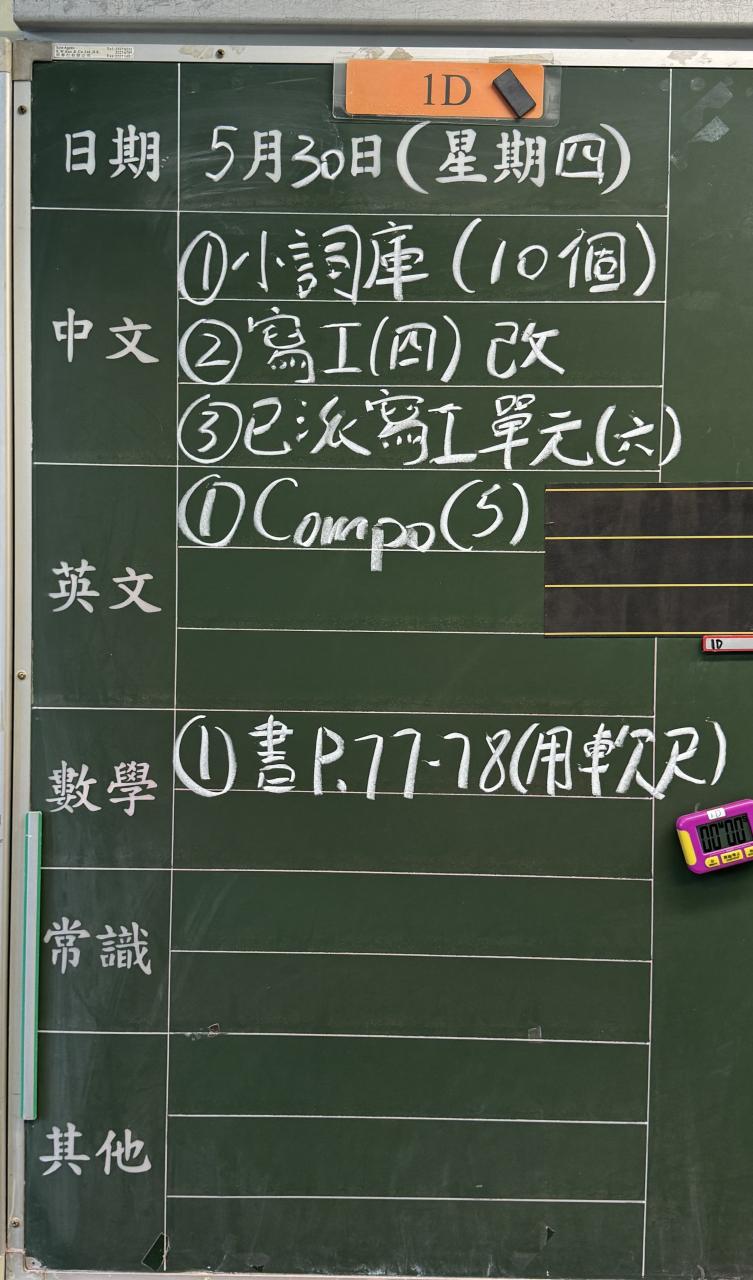 1D
日期 5月30日(星期四)
中文 ①小詞庫(10個)
②寫工(四)改
③已派寫工單元(六)
英文 ①Compo(5)
1D
數學 ①書P.77-78(用軟尺)
1D
00 00
常識
其他